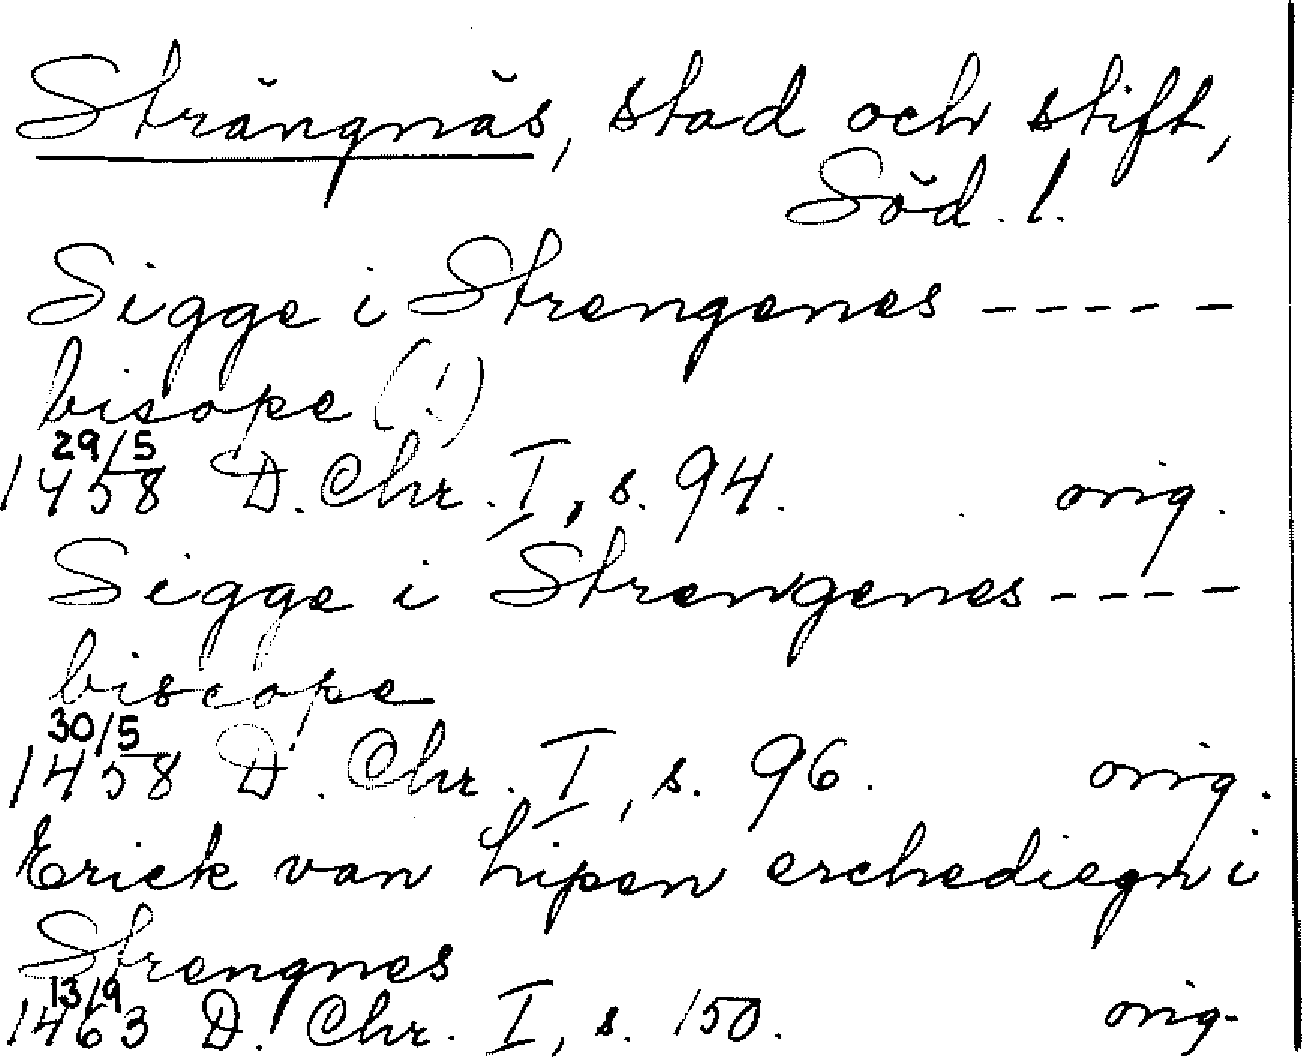 Strängnäs, stad och stift,
Söd. l.
Sigge i Strengenes -----
bisope (!)
29/5
1458 D. Chr. I, s. 94. orig.
Sigge i Strengenes ----
biscope
30/5
1458 D. Chr. I, s. 96. orig.
Erick van Lipen erchediegn i
Strengnes
13/9
1463 D. Chr. I, s. 150. orig.